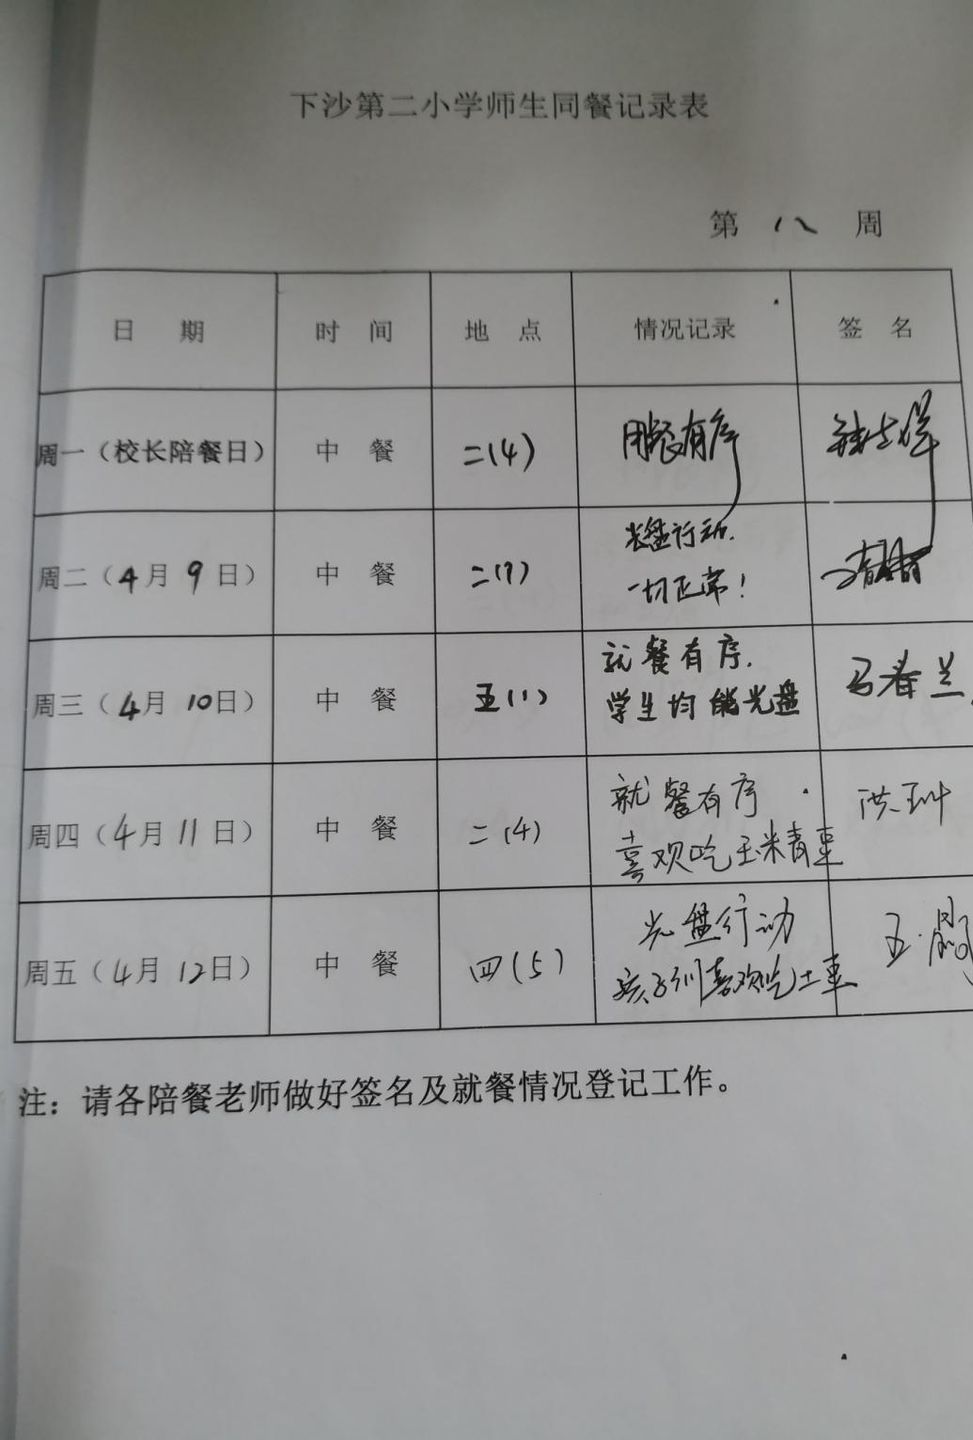 下沙第二小学师生同餐记录表
第 八 周
日 期 时 间 地 点 情况记录 签 名
周一（校长陪餐日） 中 餐 二(4) 用餐有序
周二（4月9日） 中 餐 二(7) 光盘行动.
一切正常！
周三（4月10日） 中 餐 五(1) 就餐有序. 马春兰
学生均能光盘
周四（4月11日） 中 餐 二(4) 就餐有序. 洪
喜欢吃玉米青枣
周五（4月12日） 中 餐 四(5) 光盘行动
孩子们喜欢吃
注：请各陪餐老师做好签名及就餐情况登记工作。